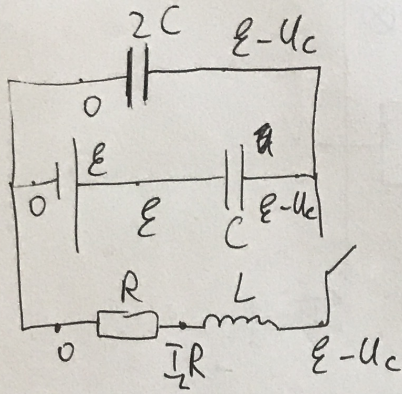 2C ℰ-Uc
0
ℰ
0 ℰ C ℰ-Uc
R L
0 I_L R ℰ-Uc